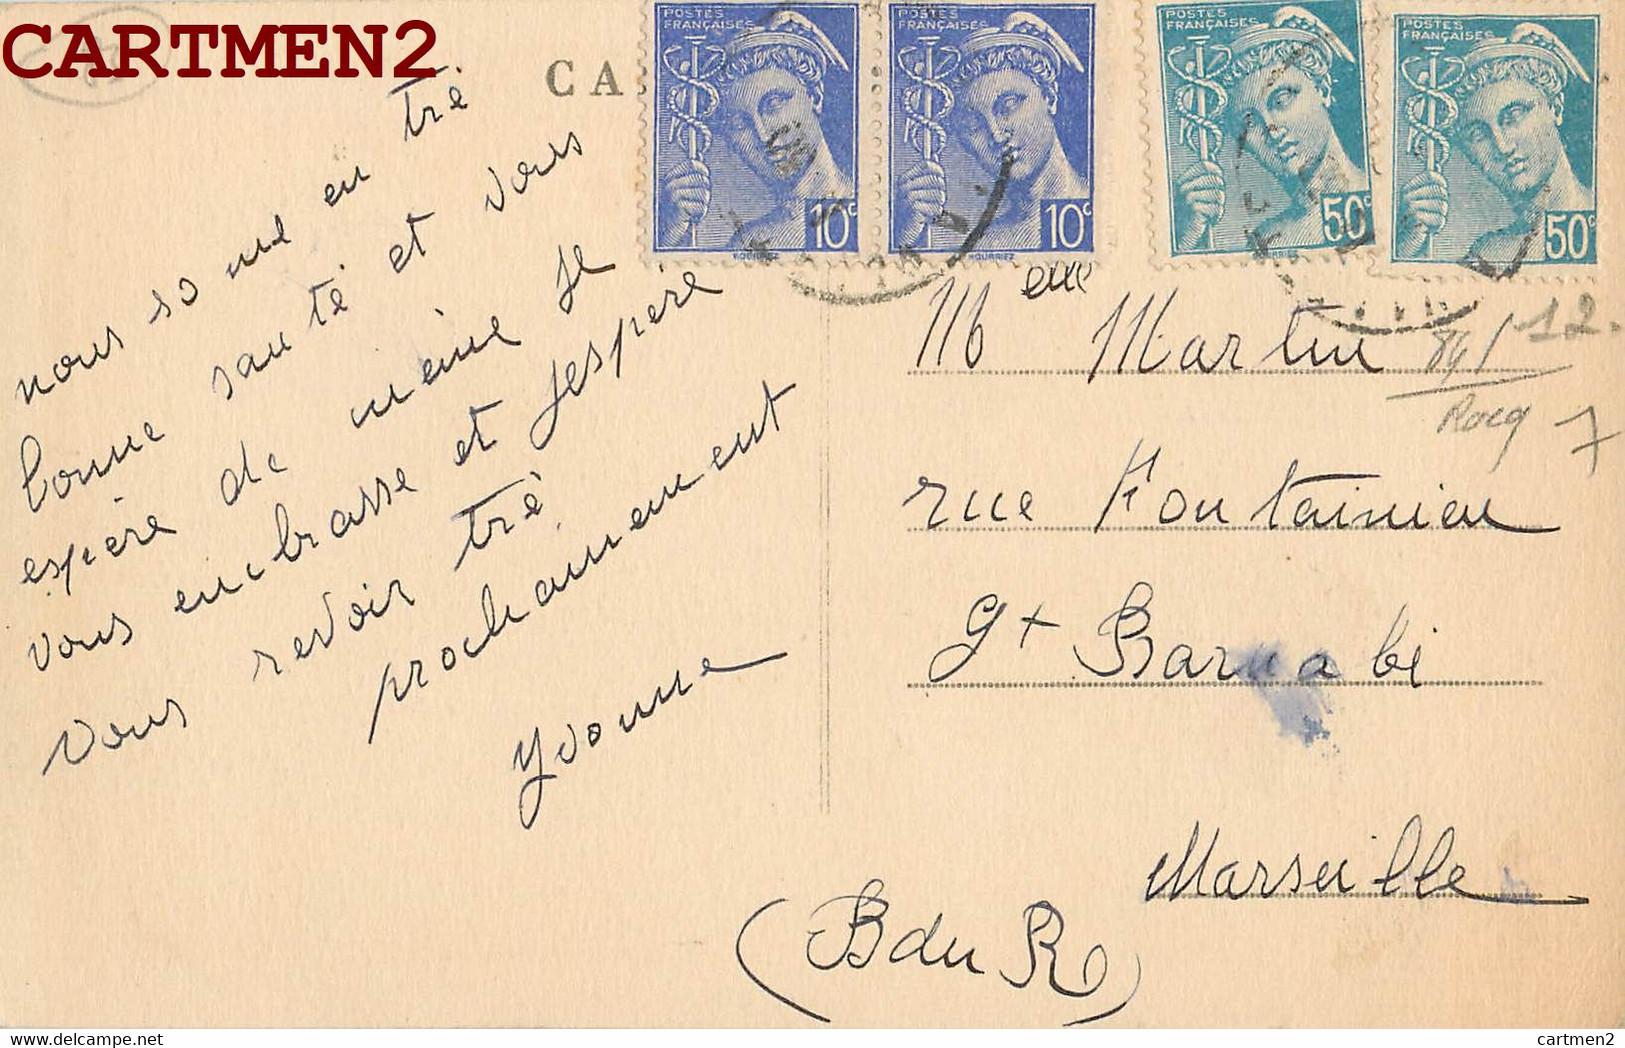 CARTMEN2
CA
POSTES FRANÇAISES
10c
HOURRIEZ
POSTES FRANÇAISES
10c
HOURRIEZ
POSTES FRANÇAISES
50c
POSTES FRANÇAISES
50c
nous so me en trè
bonne santé et vous
espère de meine je
vous embrasse et jespère
vous revoir trè
prochainement
Yvonne
Meme Martin
12.
7
rue Fontainieu
St Barnabé
Marseille
(B du R)
delcampe.net
cartmen2